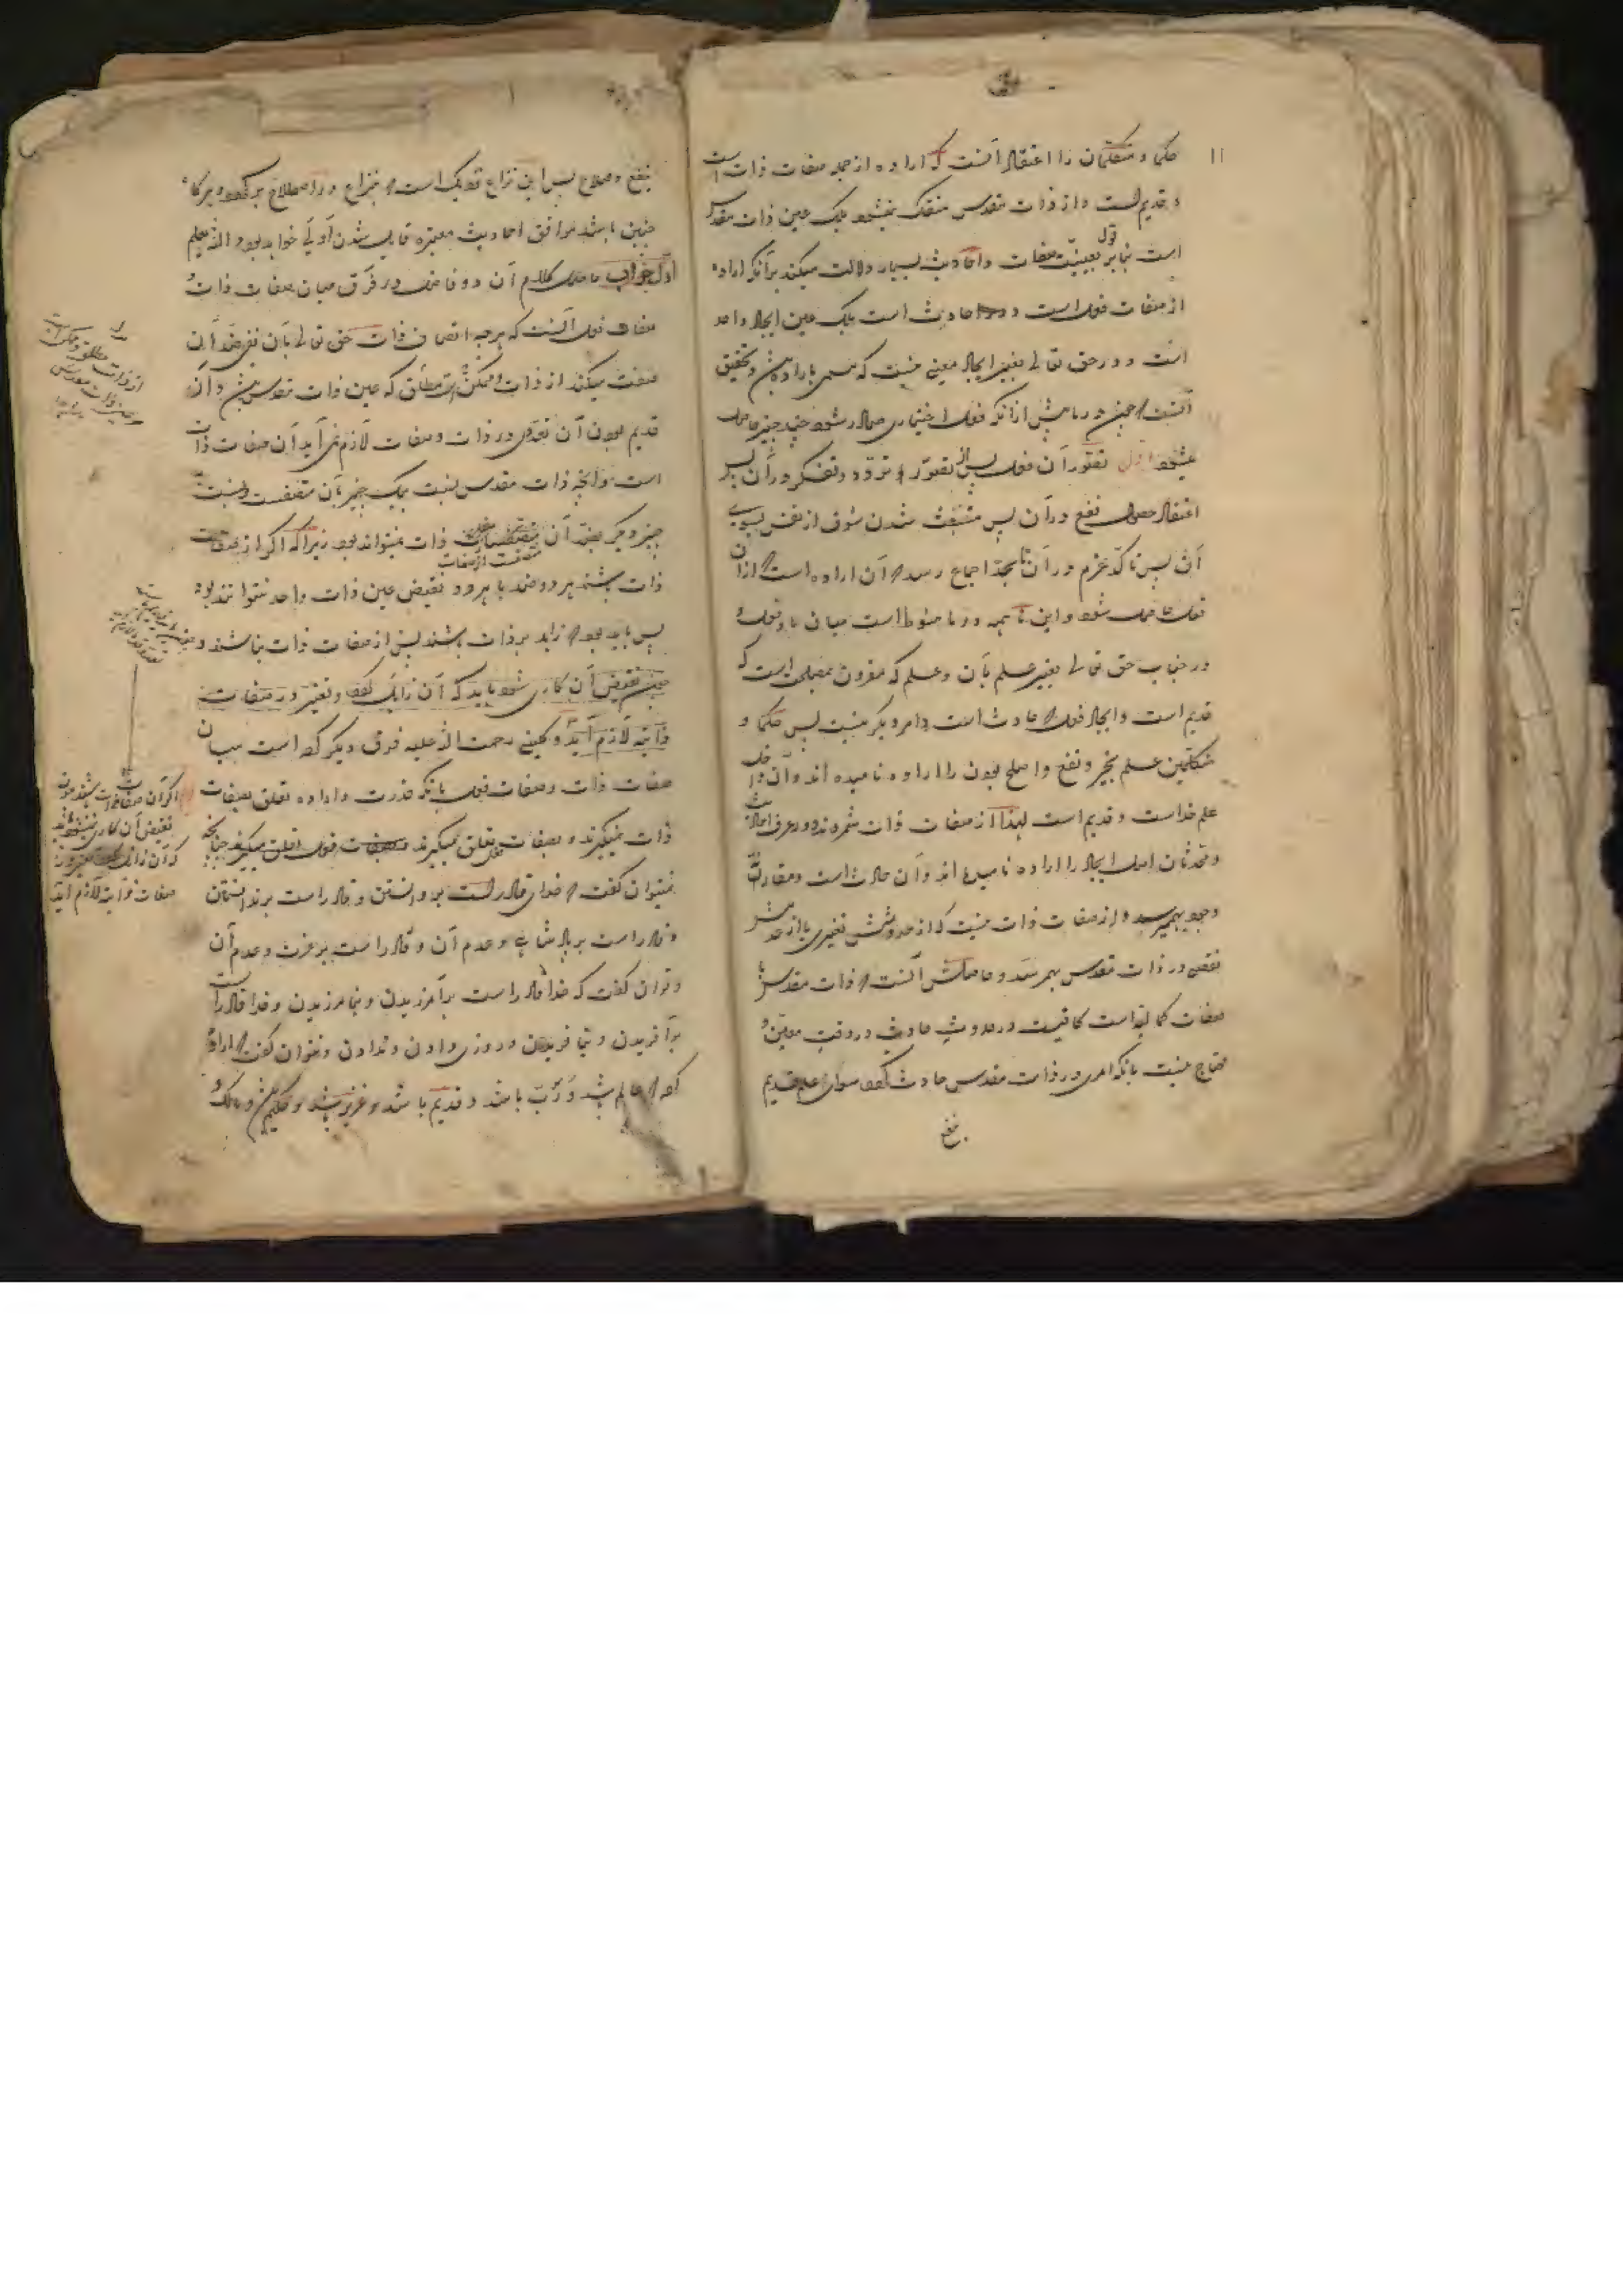 حکما و متکلمان را اعتقاد آنست که اراده از جمله صفات ذات است
و قدیم است و از ذات مقدس منفک نمیشود بلکه عین ذات مقدس
است بنابر قول بعینیت صفات و احادیث بسیار دلالت میکند برآنکه اراده
از صفات فعل است و حادث است بلکه عین ایجاد واحد
است و در حق تعالی بغیر ایجاد معنی نیست که مسمی باراده باشد و تحقیق
آنست که چون در ما پیش از آنکه فعل اختیاری صادر شود چند چیز حاصل
میشود اول تصور آن فعل پس از تصور تردد و تفکر در آن پس
اعتقاد حصول نفع در آن پس منبعث شدن شوق از نفس بسوی
آن پس تاکد عزم در آن تا بحد اجماع رسد که آن اراده است از آن
فعل حاصل شود و این همه در ما متوسط است میان ما و فعل و
در جناب حق تعالی بغیر علم بآن و علم که مقرون بمصلحت است که
قدیم است و ایجاد فعل که حادث است و امر دیگر نیست پس حکما و
متکلمین علم بخیر و نفع و اصلح بودن را اراده نامیده اند و آن داخل
علم خداست و قدیم است لهذا از صفات ذات شمرده اند و در عرف احادیث
و محدثان اصل ایجاد را اراده نامیده اند و آن حادث است و مقارن
وجود بهم میرسد و از صفات ذات نیست که از حدوثش تغیری یا از
نقصی در ذات مقدس بهم رسد و حاصلش آنست که ذات مقدس با
صفات کمالیه است کافیست در حدوث حادث در وقت معین و
محتاج نیست بانکه امری در ذات مقدس حادث گردد سوای علم قدیم
بنفع
بنفع و صلاح پس این نزاع نزدیک است که بنزاع در اصطلاح برگردد و هرگاه
چنین باشد موافق احادیث معتبره قایل شدن اولی خواهد بود والله یعلم
حاصل کلام آن دو فاضل در فرق میان صفات ذات و
صفات فعل آنست که هر چه اتصاف ذات حق تعالی بآن
که عین ذات مقدس و از
قدیم بودن آن تعددی در ذات و صفات لازم نمی آید آن صفات ذات
است و آنچه ذات مقدس نسبت بیک چیز بآن متصفست و نسبت
چیز دیگر بضد آن ذات نمیتواند بود زیرا که اگر از صفات
ذات باشند هر دو ضد یا هر دو نقیض عین ذات واحد نتوانند بود
پس باید بود که زاید بر ذات باشند پس از صفات ذات نباشند و
چون نقیض آن شود باید که آن زایل گردد و تغیر در صفات
ذاتیه لازم آید و کلینی رحمت الله علیه فرق دیگر کرده است میان
صفات ذات و صفات فعل بانکه قدرت و اراده تعلق بصفات
ذات نمیگیرند و بصفات فعل تعلق میگیرند چنانچه
نمیتوان گفت که خدای قادر است بر دانستن و قادر است بر ندانستن
و قادر است بر پادشاهی و عدم آن و قادر است بر عزت و عدم آن
و توان گفت که خدا قادر است بر آمرزیدن و نیامرزیدن و خدا قادر است
بر آفریدن و نیافریدن و روزی دادن و ندادن و نتوان گفت که اراده
کرد که عالم باشد و رب باشد و قدیم باشد و عزیز باشد و حکیم باشد و مالک و
اگر آن صفات ذات باشند چون
نقیض آن
که آن زایل
صفات ذاتیه لازم آید